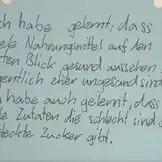 ch habe gelernt, dass
ele Nahrungsmittel auf den
ten Blick gesund aussehen
gentlich eher ungesund sind
h habe auch gelernt, dass
le Zutaten die schlecht sind o
teckte Zucker gibt.